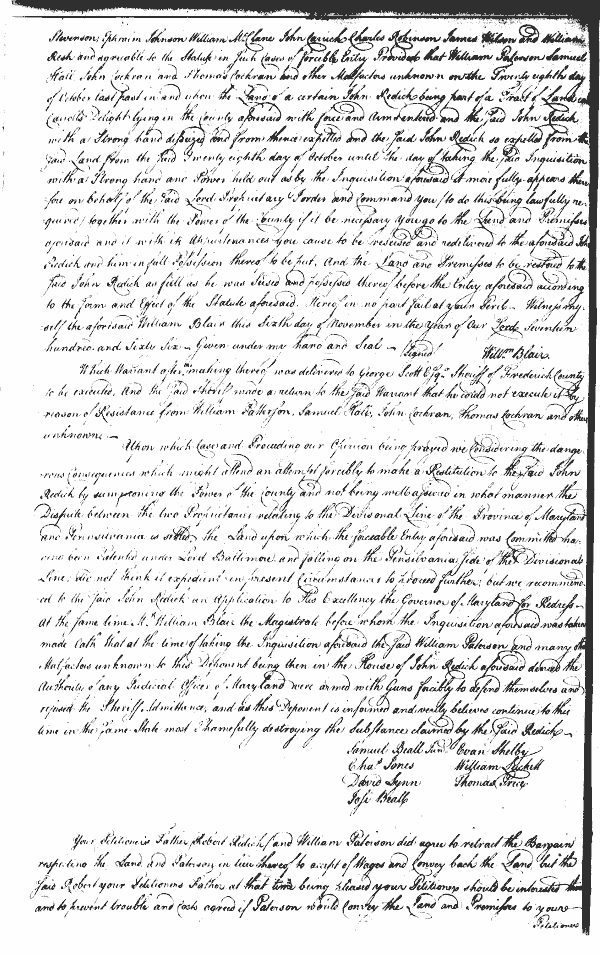 Stevenson; Ephraim Johnson William McClane John Carrick Charles Robinson James Wilson and William
Resh and agreeable to the Statute in Such Cases of forcible Entry Provided that William Paterson Samuel
Hall John Cochran and Thomas Cochran and other Malefactors unknown on the Twenty eighth day
of October last past in and upon the Land of a certain John Redick being part of a Tract of Land
Carrolls Delight lying in the County aforesaid with force and Arms entered and the said John Redick
with a Strong hand disseized and from thence expelled and the said John Redick so expelled from the
said Land from the said Twenty eighth day of October until the day of taking the said Inquisition
with a Strong hand and Power held out as by the Inquisition aforesaid it more fully appears there
fore on behalf of the said Lord Proprietary I order and Command you (to do this being lawfully re-
quired) together with the Power of the County if it be necessary you go to the Land and Premisses
aforesaid and it with its Appurtenances you cause to be reseised and redelivered to the aforesaid John
Redick and him in full Possession thereof to be put. And the Land and Premisses to be restored to the
said John Redick as full as he was Seised and possessed thereof before the Entry aforesaid according
to the form and Effect of the Statute aforesaid. Hereof in no part fail at your Peril – Witness my
self the aforesaid William Blair this Sixth day of November in the Year of Our Lord Seventeen
hundred and Sixty Six – Given under my hand and Seal – (Signed) Willm Blair.
Which Warrant after making thereof was delivered to George Scott Esqr. Sheriff of Frederick County
to be executed. And the said Sheriff made a return to the said Warrant that he could not execute it by
reason of Resistance from William Paterson, Samuel Hall, John Cochran, Thomas Cochran and others
unknown –
Upon which Case and Proceeding our Opinion being prayed we Considering the dange
rous Consequences which might attend an attempt forcibly to make a Restitution to the said John
Redick by summoning the Power of the County and not being well assured in what manner the
Dispute between the two Proprietaries relating to the Divisional Line of the Province of Maryland
and Pennsylvania is settled, the Land upon which the forceable Entry aforesaid was Committed ha-
ving been Patented under Lord Baltimore and falling on the Pensilvania side of that Divisional
Line, did not think it expedient in present Circumstances to proceed further, but we recommend
ed to the said John Redick an Application to His Excellency the Governor of Maryland for Redress –
At the same time Mr William Blair the Magistrate before whom the Inquisition aforesaid was taken
made Oath that at the time of taking the Inquisition aforesaid the said William Paterson and many other
Malefactors unknown to this Deponent being then in the House of John Redick aforesaid denied the
Authority of any Judicial Officer of Maryland were armed with Guns forcibly to defend themselves and
refused the Sheriff Admittance, and as this Deponent is informed and verily believes continue to this
time in the same State most shamefully destroying the substance claimed by the said Redick –
Samuel Beall Junr Evan Shelby
Chas Jones William Luckett
David Lynn Thomas Price
Josi Beall
Your Petitioners Father (Robert Redick) and William Paterson did agree to retract the Bargain
respecting the Land and Paterson in lieu thereof to accept of Wages and Convey back the Land, but the
said Robert your Petitioners Father at that time being pleased your Petitioner should be interested
and to prevent trouble and costs agreed if Paterson would Convey the Land and Premisses to your
Petitioner